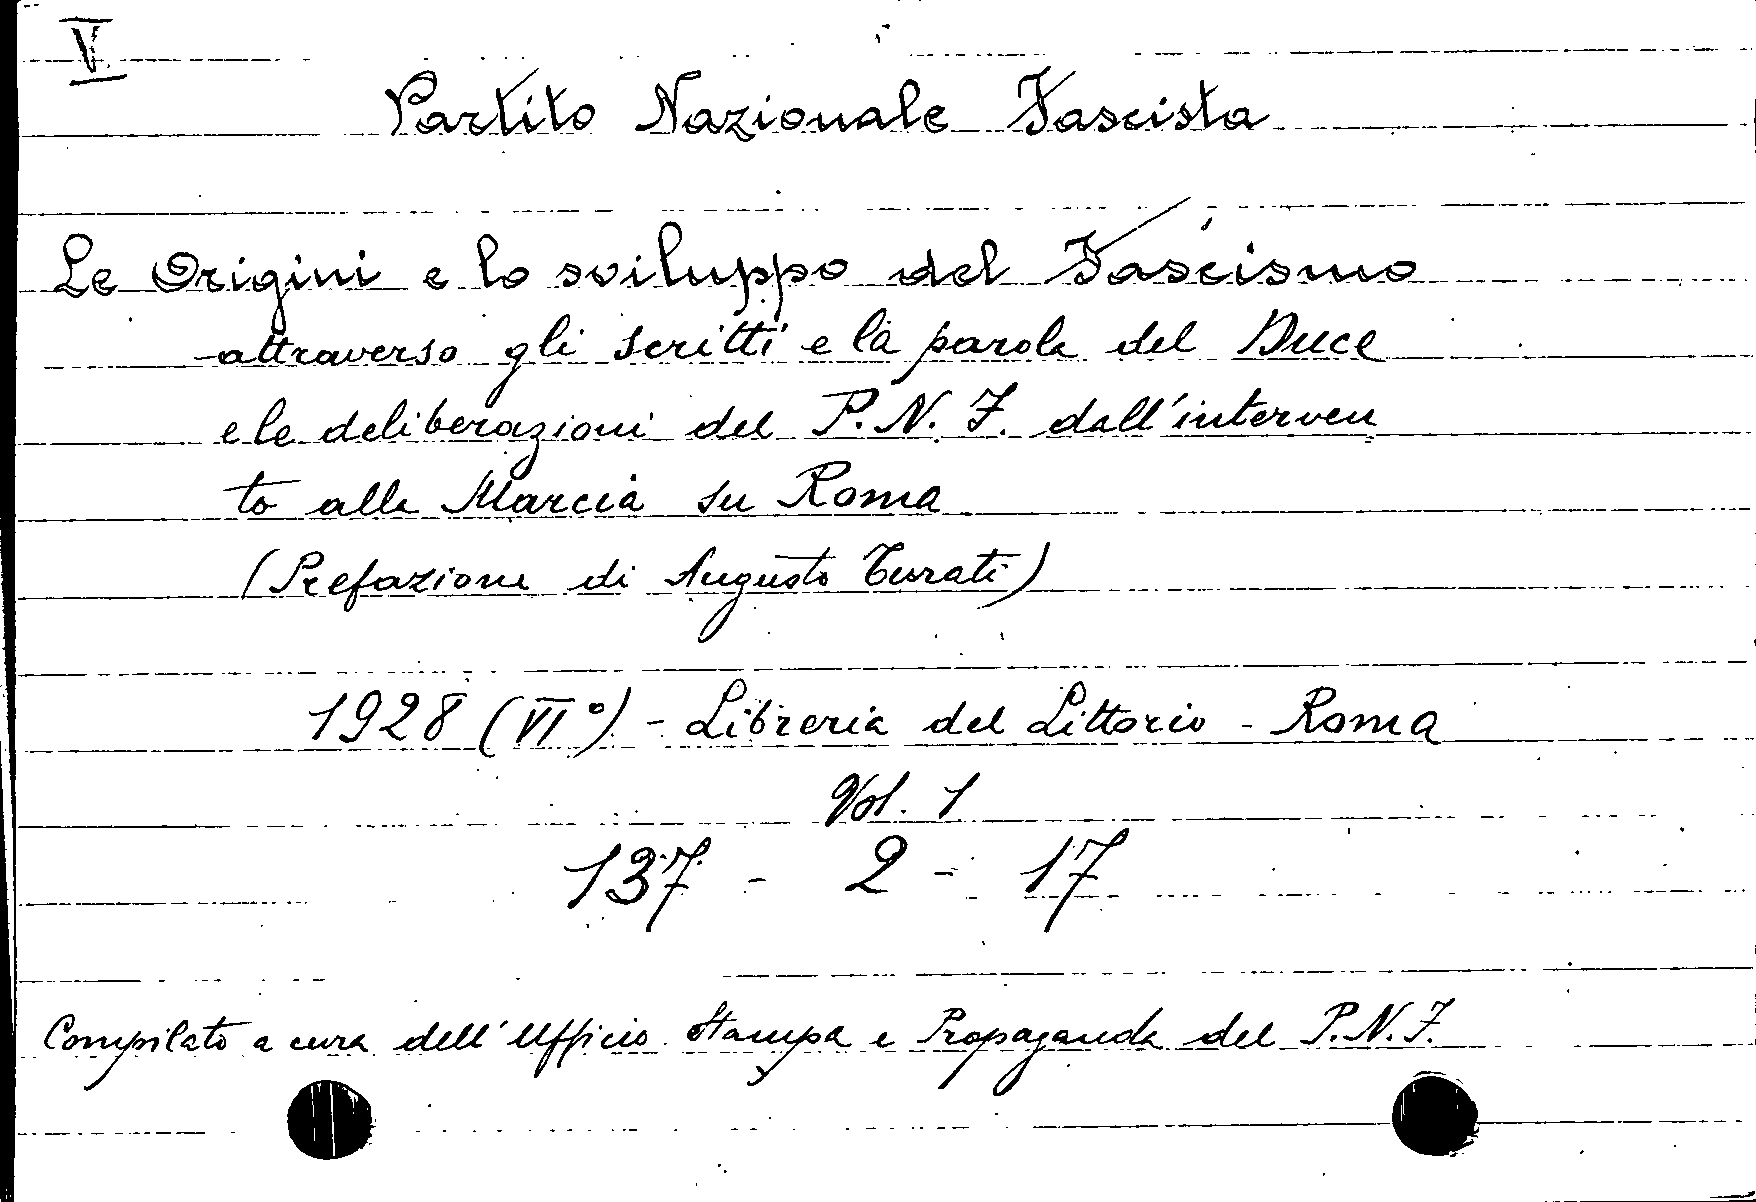 V
Partito Nazionale Fascista
Le Origini e lo sviluppo del Fascismo
attraverso gli scritti e la parola del Duce
e le deliberazioni del P.N.F. dall'interven
to alla Marcia su Roma
(Prefazione di Augusto Turati)
1928 (VI°) - Libreria del Littorio - Roma
Vol. 1
137 - 2 - 17
Compilato a cura dell'Ufficio Stampa e Propaganda del P.N.F.